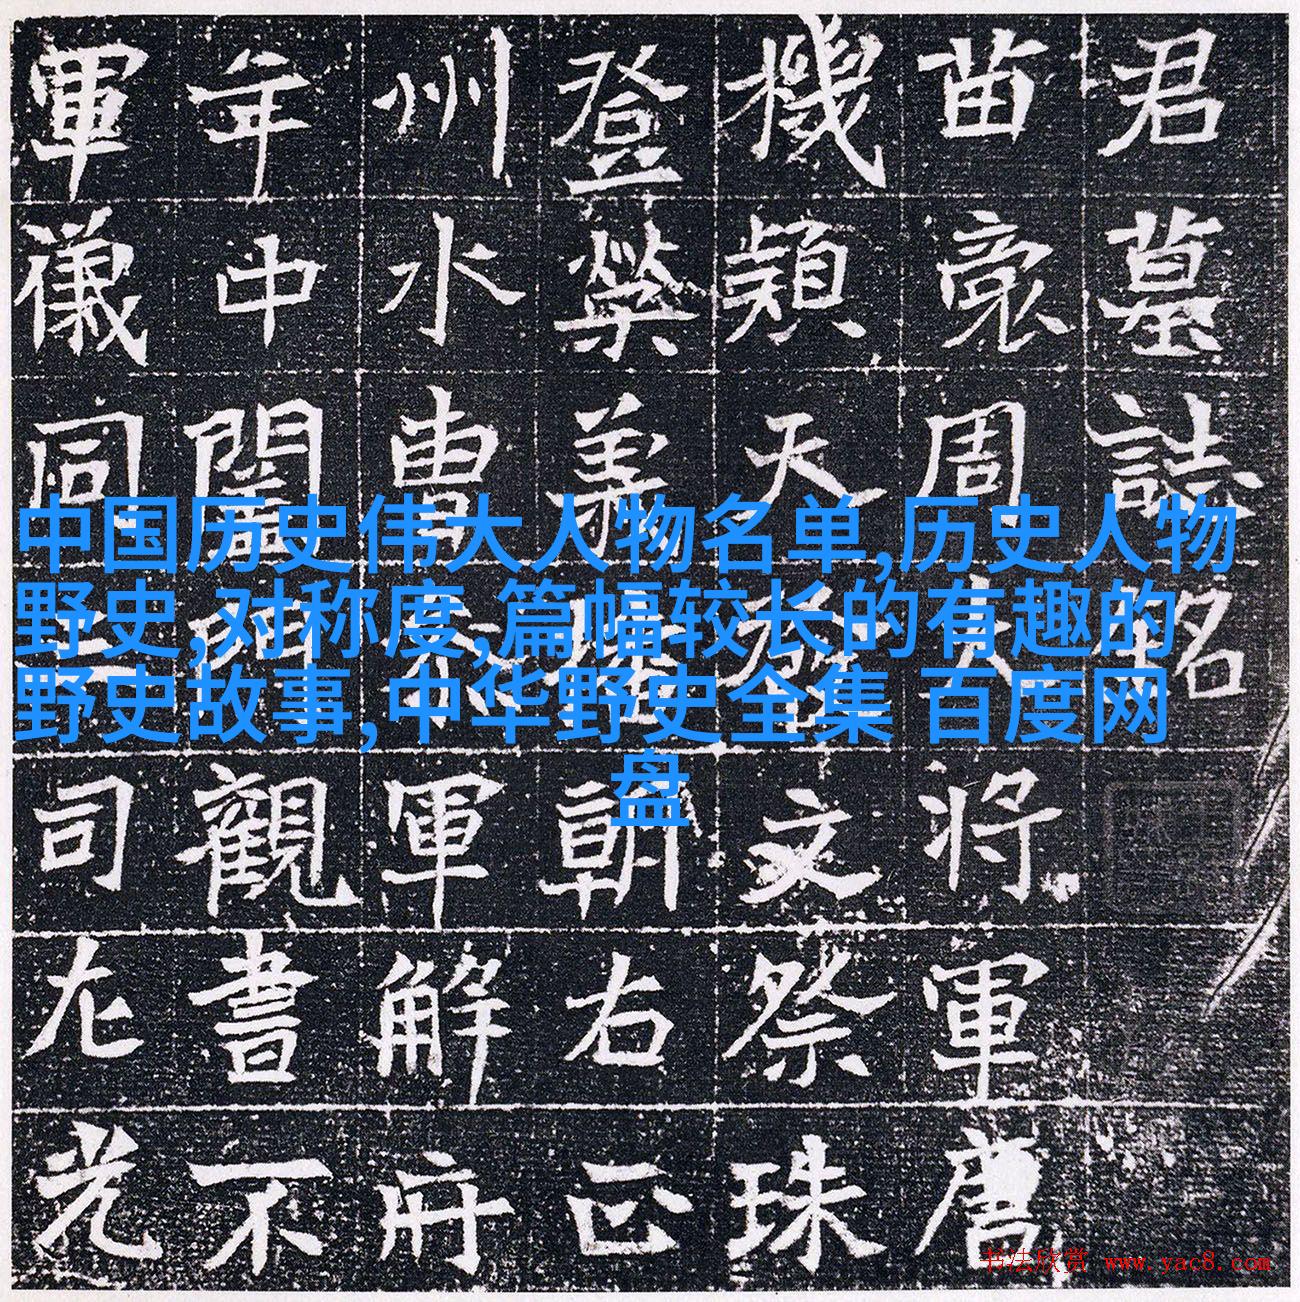 君墓誌銘
苗裔周大将軍唐
機穎天發文祭珠
登榮朝右正
州水曹參軍解
年中閣內觀書不
軍儀同三司左光
中国历史伟大人物名单,历史人物
野史,对称度,篇幅较长的有趣的
野史故事,中华野史全集 百度网
盘
书法欣赏 www.yac8.com